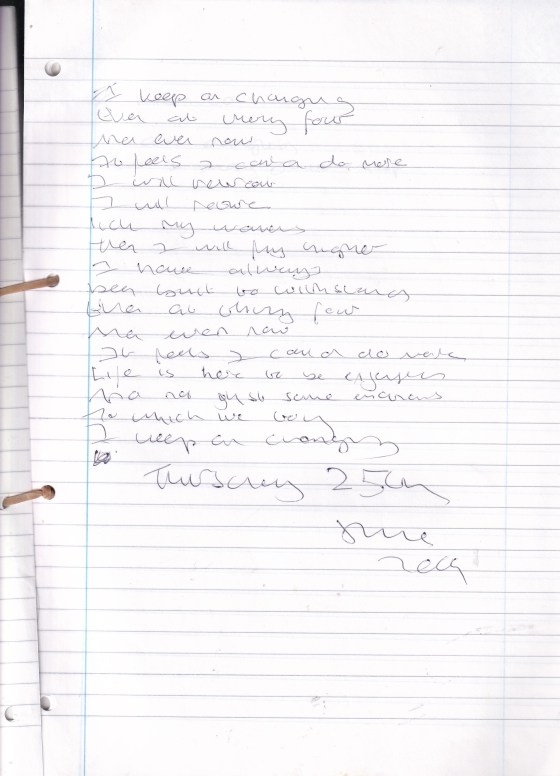 I keep on changing
Even at thirty four
And even now
It feels I could do more
I will
I will
lick my wounds
then I will fly higher
I have always
been built to withstand
Even at thirty four
And even now
It feels I could do more
Life is here to be enjoyed
And not just some
to which we
I keep on changing
Thursday 25th
June